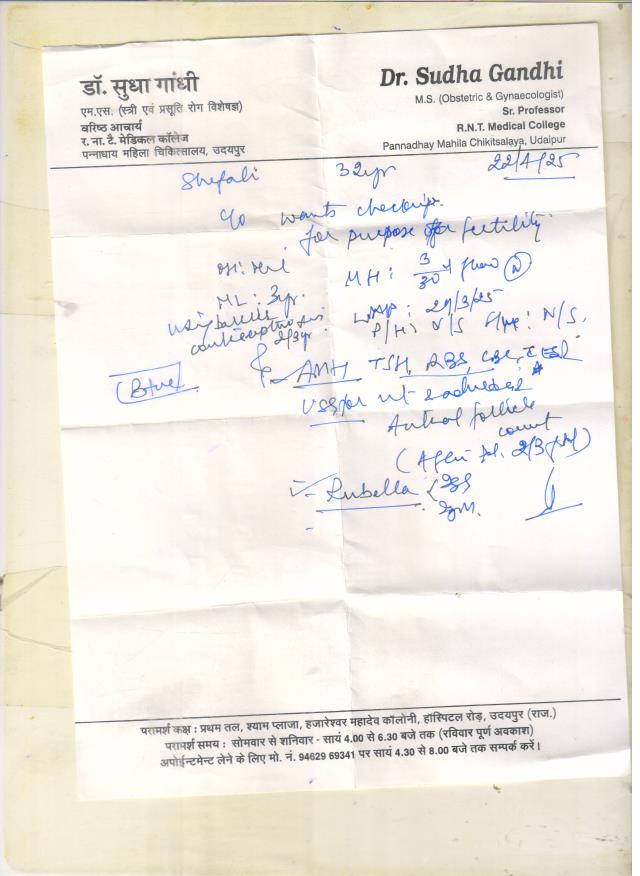 डॉ. सुधा गांधी
एम.एस. (स्त्री एवं प्रसूति रोग विशेषज्ञ)
वरिष्ठ आचार्य
र. ना. टै. मेडिकल कॉलेज
पन्नाधाय महिला चिकित्सालय, उदयपुर
Dr. Sudha Gandhi
M.S. (Obstetric & Gynaecologist)
Sr. Professor
R.N.T. Medical College
Pannadhay Mahila Chikitsalaya, Udaipur
Shefali 32yr 22/4/25
c/o wants checkup
for purpose of fertility
MH: 3/30 flow N
ML: 3yr.
LMP: 29/3/25
using barrier
P/H: N/S F/H: N/S.
2/3yr
B+ve
AMH TSH, RBS, CBC,
USG for ut &
Antral follicle
count
Rubella IgG
IgM.
परामर्श कक्ष : प्रथम तल, श्याम प्लाजा, हजारेश्वर महादेव कॉलोनी, हॉस्पिटल रोड़, उदयपुर (राज.)
परामर्श समय : सोमवार से शनिवार - सायं 4.00 से 6.30 बजे तक (रविवार पूर्ण अवकाश)
अपोईन्टमेन्ट लेने के लिए मो. नं. 94629 69341 पर सायं 4.30 से 8.00 बजे तक सम्पर्क करें।